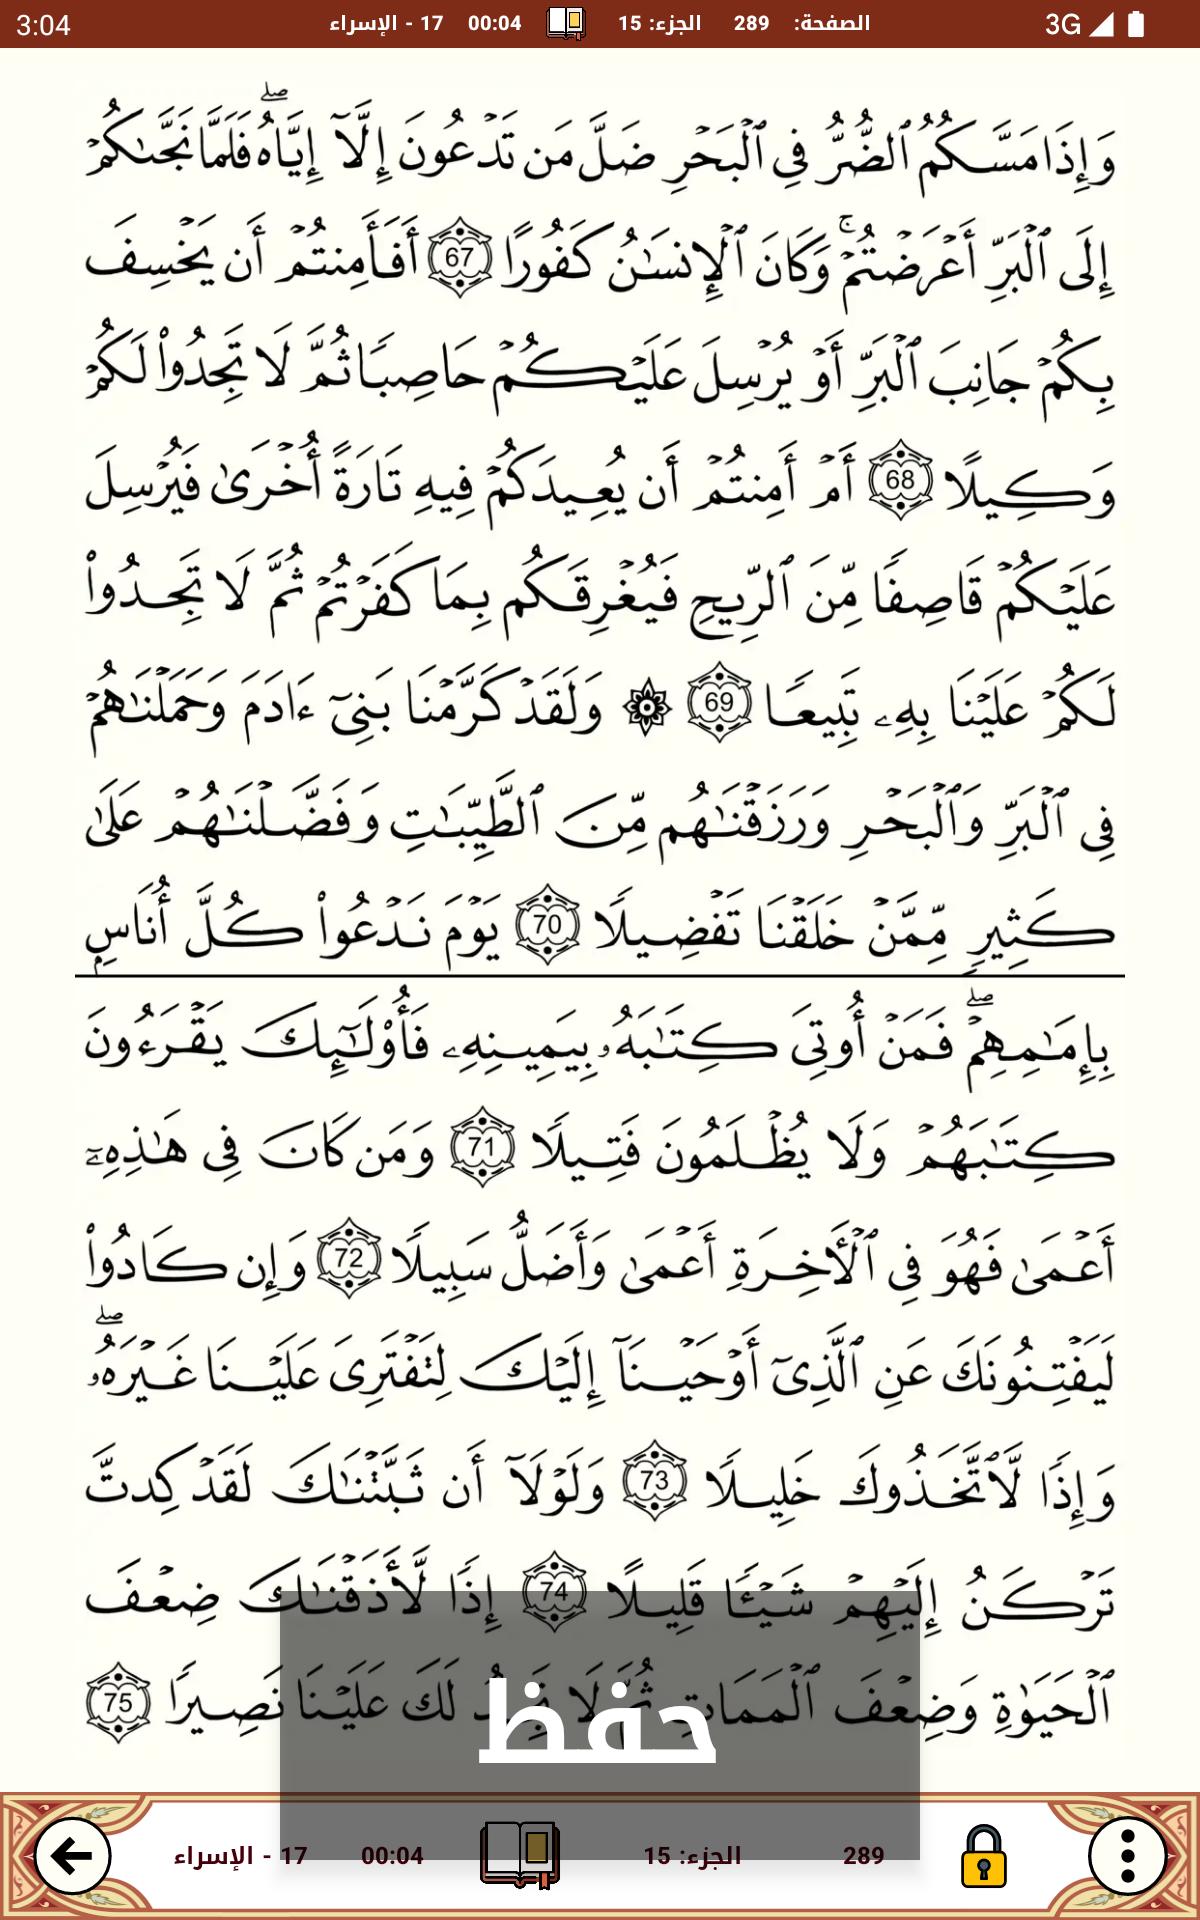 3:04 الصفحة: 289 الجزء: 15 00:04 17 - الإسراء 3G
وَإِذَا مَسَّكُمُ ٱلضُّرُّ فِى ٱلْبَحْرِ ضَلَّ مَن تَدْعُونَ إِلَّآ إِيَّاهُ ۖ فَلَمَّا نَجَّىٰكُمْ
إِلَى ٱلْبَرِّ أَعْرَضْتُمْ ۚ وَكَانَ ٱلْإِنسَـٰنُ كَفُورًا 67 أَفَأَمِنتُمْ أَن يَخْسِفَ
بِكُمْ جَانِبَ ٱلْبَرِّ أَوْ يُرْسِلَ عَلَيْكُمْ حَاصِبًا ثُمَّ لَا تَجِدُوا۟ لَكُمْ
وَكِيلًا 68 أَمْ أَمِنتُمْ أَن يُعِيدَكُمْ فِيهِ تَارَةً أُخْرَىٰ فَيُرْسِلَ
عَلَيْكُمْ قَاصِفًا مِّنَ ٱلرِّيحِ فَيُغْرِقَكُم بِمَا كَفَرْتُمْ ثُمَّ لَا تَجِدُوا۟
لَكُمْ عَلَيْنَا بِهِۦ تَبِيعًا 69 ۞ وَلَقَدْ كَرَّمْنَا بَنِىٓ ءَادَمَ وَحَمَلْنَـٰهُمْ
فِى ٱلْبَرِّ وَٱلْبَحْرِ وَرَزَقْنَـٰهُم مِّنَ ٱلطَّيِّبَـٰتِ وَفَضَّلْنَـٰهُمْ عَلَىٰ
كَثِيرٍ مِّمَّنْ خَلَقْنَا تَفْضِيلًا 70 يَوْمَ نَدْعُوا۟ كُلَّ أُنَاسٍ
بِإِمَـٰمِهِمْ ۖ فَمَنْ أُوتِىَ كِتَـٰبَهُۥ بِيَمِينِهِۦ فَأُو۟لَـٰٓئِكَ يَقْرَءُونَ
كِتَـٰبَهُمْ وَلَا يُظْلَمُونَ فَتِيلًا 71 وَمَن كَانَ فِى هَـٰذِهِۦٓ
أَعْمَىٰ فَهُوَ فِى ٱلْـَٔاخِرَةِ أَعْمَىٰ وَأَضَلُّ سَبِيلًا 72 وَإِن كَادُوا۟
لَيَفْتِنُونَكَ عَنِ ٱلَّذِىٓ أَوْحَيْنَآ إِلَيْكَ لِتَفْتَرِىَ عَلَيْنَا غَيْرَهُۥ ۖ
وَإِذًا لَّٱتَّخَذُوكَ خَلِيلًا 73 وَلَوْلَآ أَن ثَبَّتْنَـٰكَ لَقَدْ كِدتَّ
تَرْكَنُ إِلَيْهِمْ شَيْـًٔا قَلِيلًا 74 إِذًا لَّأَذَقْنَـٰكَ ضِعْفَ
ٱلْحَيَوٰةِ وَضِعْفَ ٱلْمَمَاتِ ثُمَّ لَا تَجِدُ لَكَ عَلَيْنَا نَصِيرًا 75
حفظ
289 الجزء: 15 00:04 17 - الإسراء